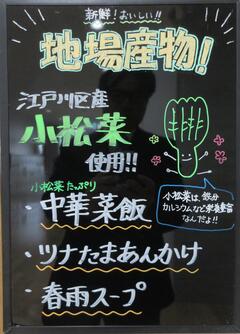 新鮮!おいしい!!
地場産物!
江戸川区産
小松菜
使用!!
小松菜たっぷり
・中華菜飯
・ツナたまあんかけ
・春雨スープ
小松菜は、鉄分
カルシウムなど栄養豊富
なんだよ!!